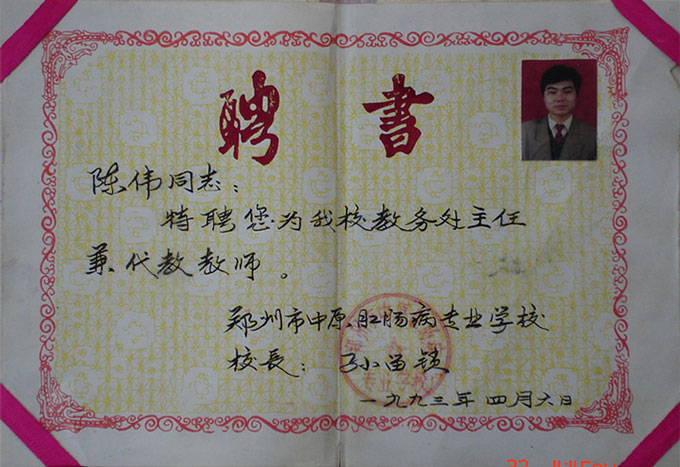 聘书
陈伟同志：
特聘您为我校教务处主任
兼代教教师。
郑州市中原肛肠病专业学校
校長：
一九九三年四月六日